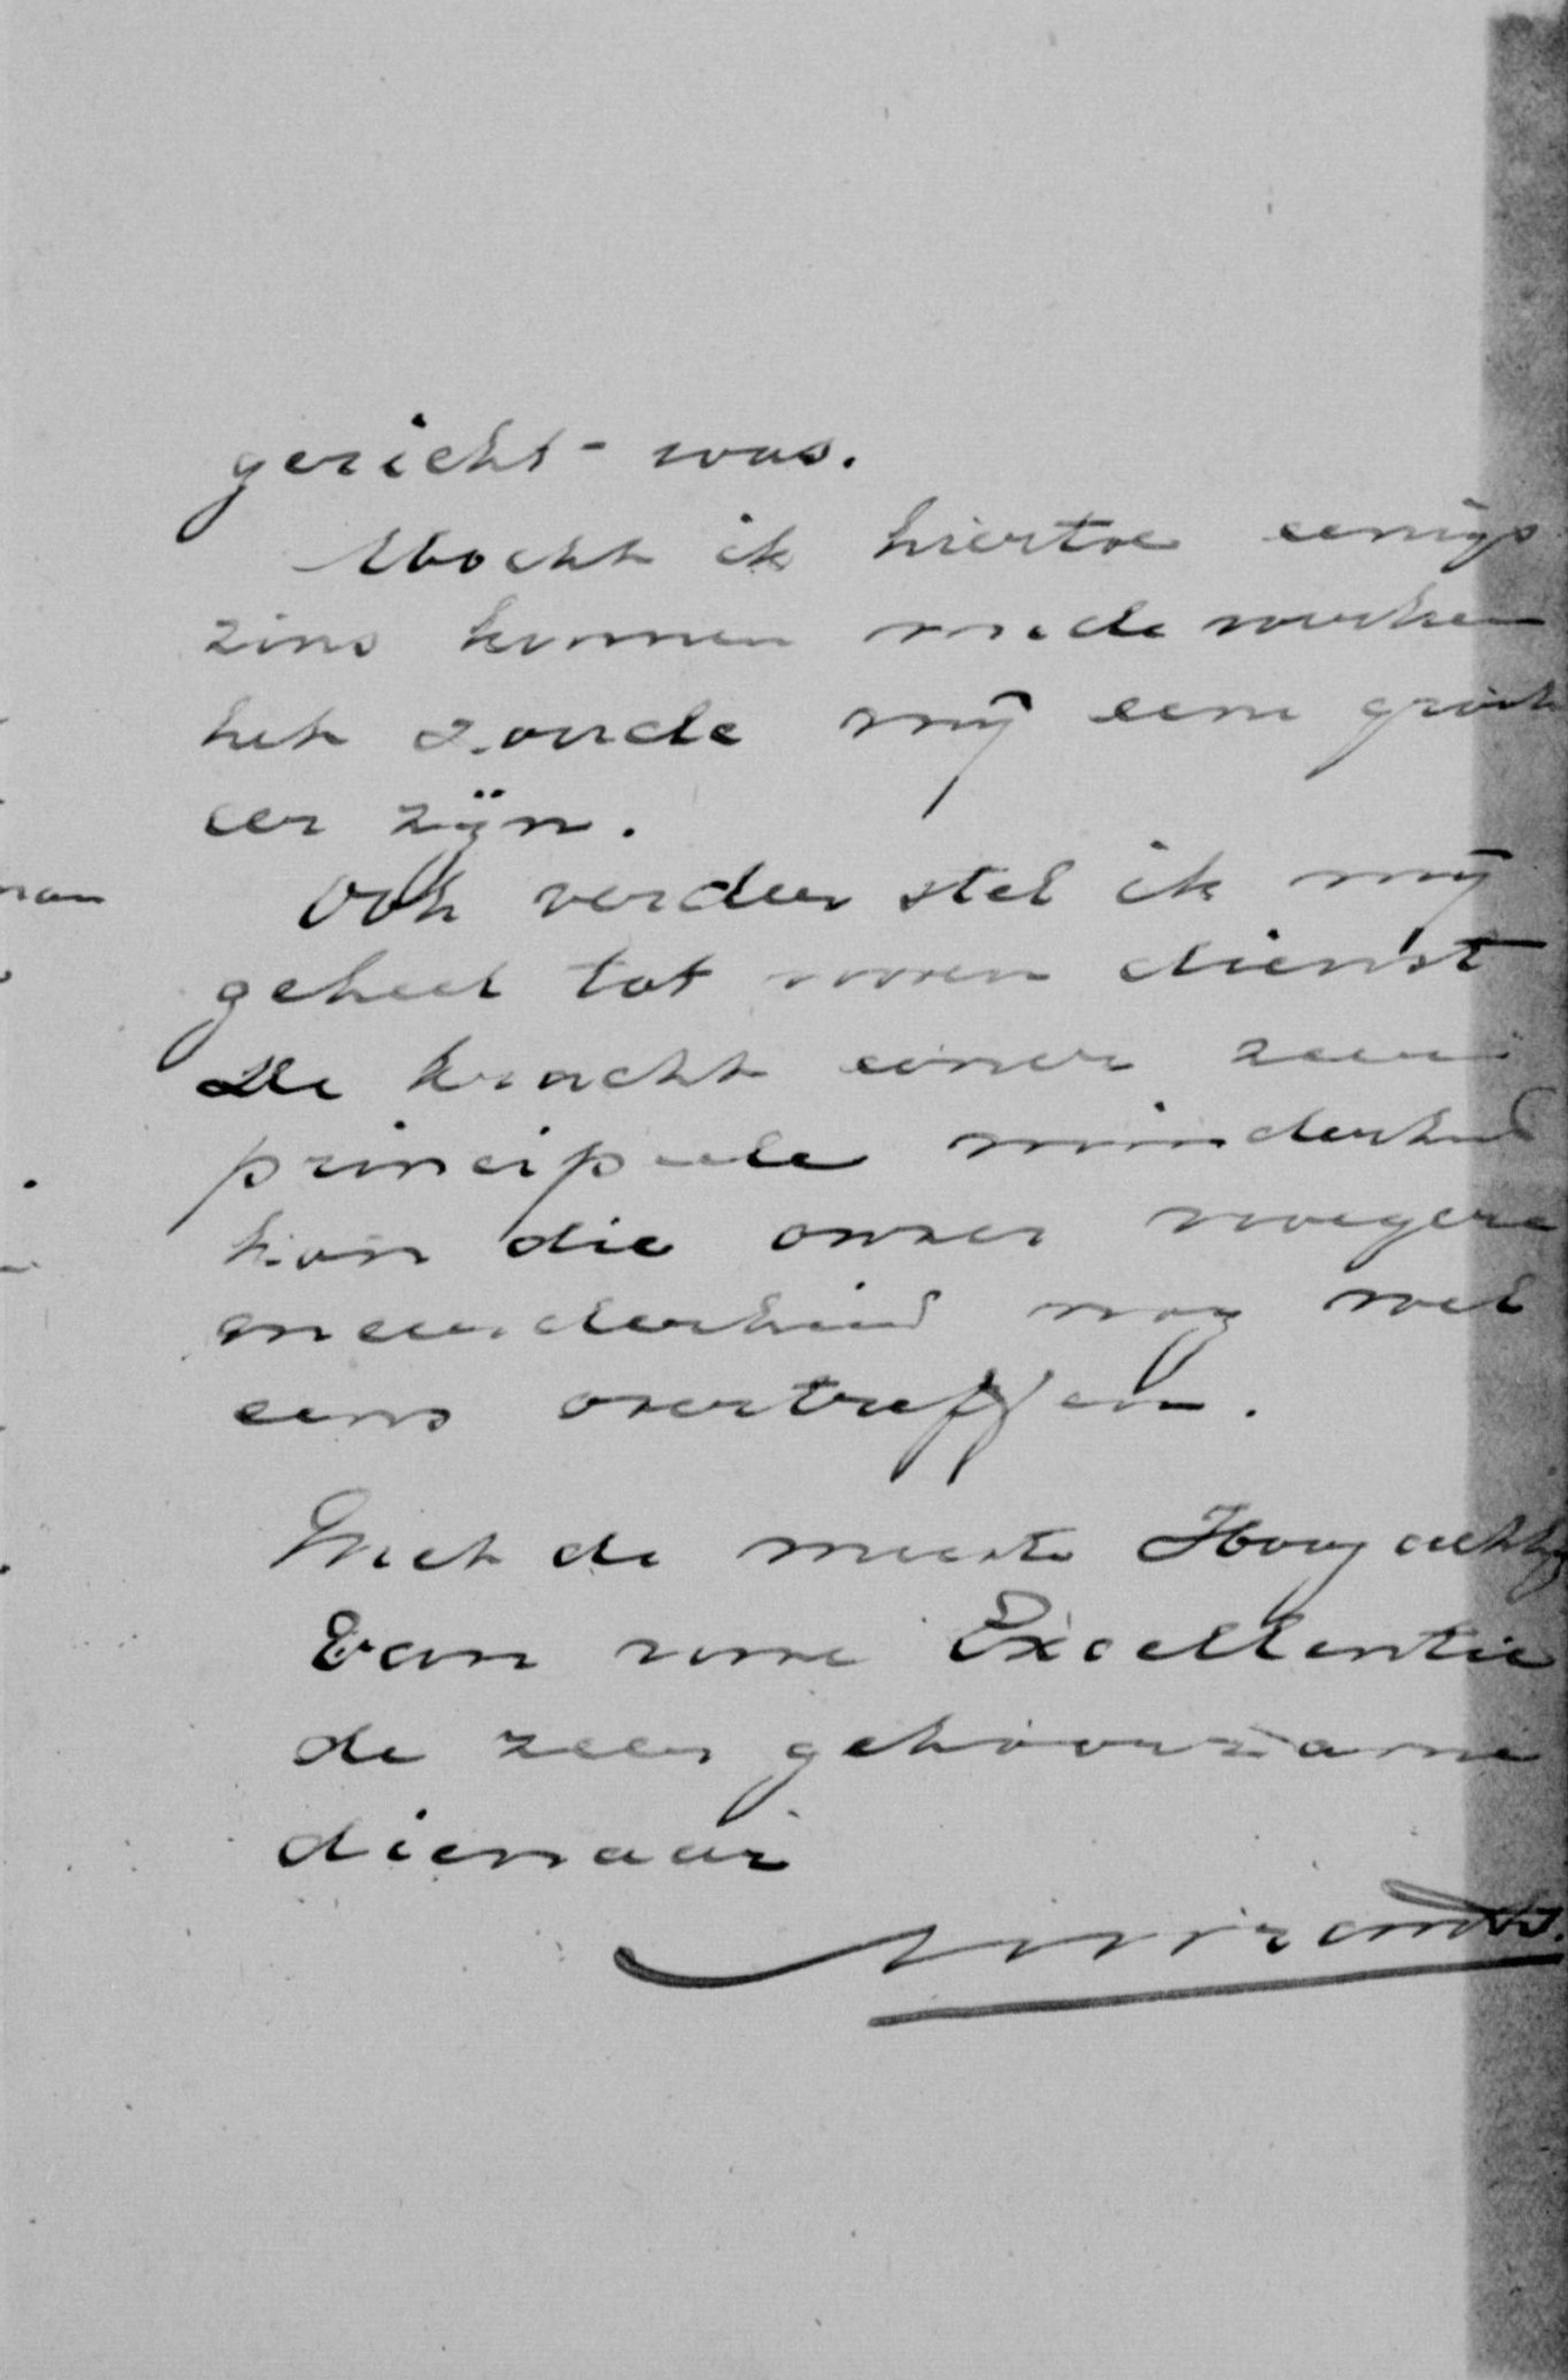 gericht was.
Mocht ik hiertoe eenigs
zins kunnen medewerken
het zoude mij eene groote
eer zijn.
Ook verder stel ik mij
geheel tot uwen dienst
De kracht eener zeer
principeele minderheid
kon die onzer vroegere
meerderheid nog wel
eens overtreffen.
Met de meeste Hoogachting
Van uwe Excellentie
de zeer gehoorzame
dienaar